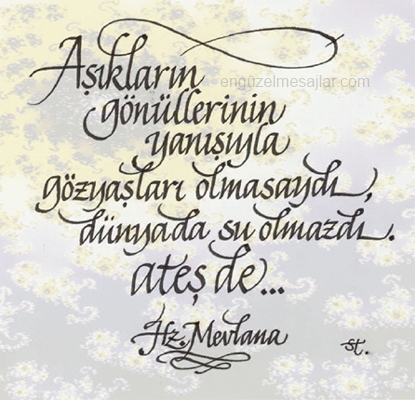 Aşıkların
engüzelmesajlar.com
gönüllerinin
yanışıyla
gözyaşları olmasaydı,
dünyada su olmazdı.
ateş de...
Hz. Mevlana
st.